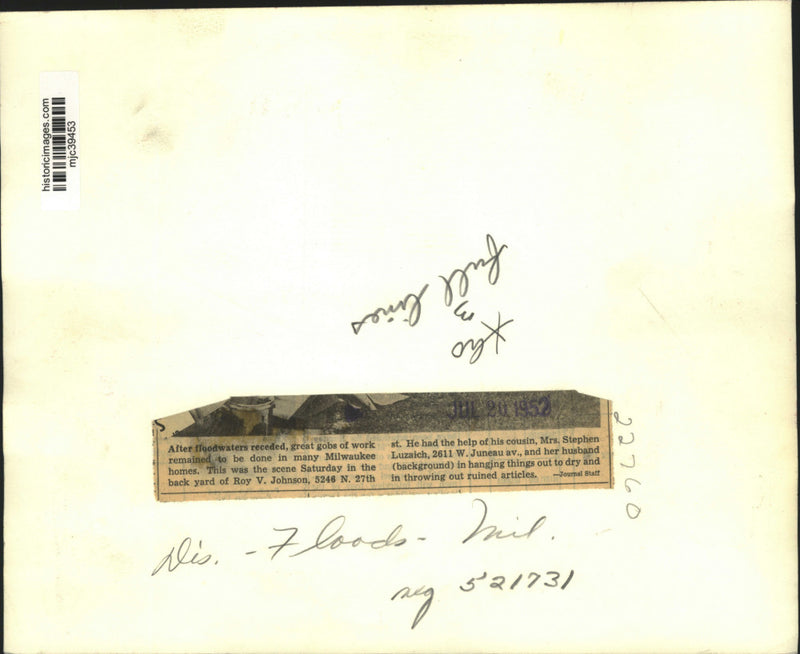 historicimages.com
mjc39453
full lines
JUL 20 1952
After floodwaters receded, great gobs of work
remained to be done in many Milwaukee
homes. This was the scene Saturday in the
back yard of Roy V. Johnson, 5246 N. 27th
st. He had the help of his cousin, Mrs. Stephen
Luzaich, 2611 W. Juneau av., and her husband
(background) in hanging things out to dry and
in throwing out ruined articles. —Journal Staff
22760
Dis. - Floods - Mil.
neg 521731